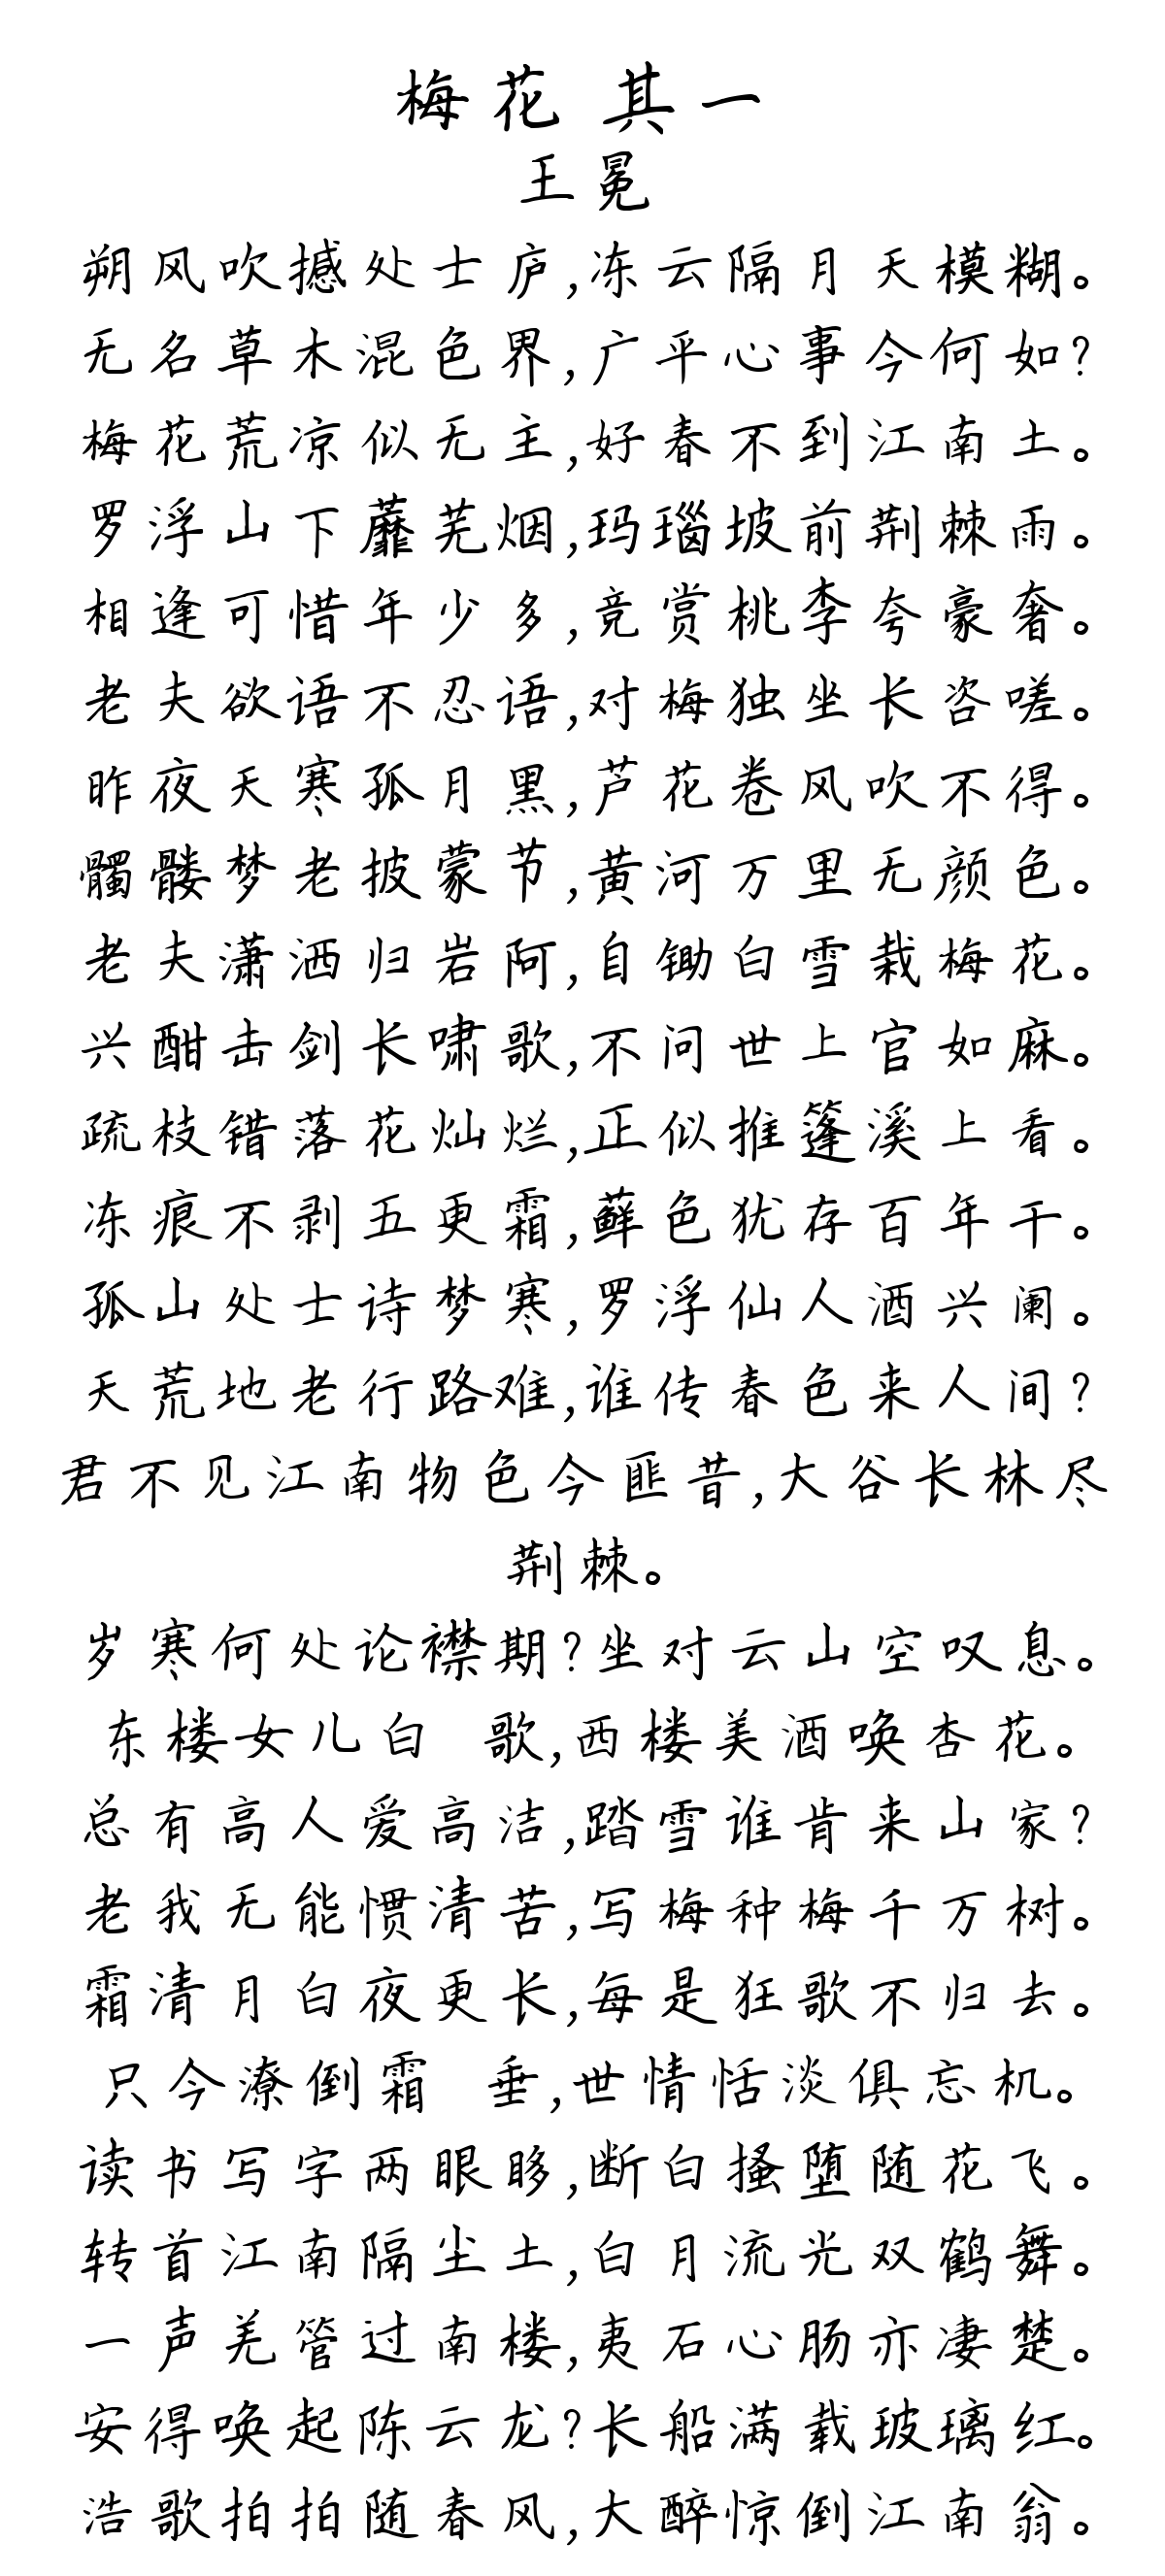 梅花 其一
王冕
朔风吹撼处士庐,冻云隔月天模糊。
无名草木混色界,广平心事今何如?
梅花荒凉似无主,好春不到江南土。
罗浮山下蘼芜烟,玛瑙坡前荆棘雨。
相逢可惜年少多,竞赏桃李夸豪奢。
老夫欲语不忍语,对梅独坐长咨嗟。
昨夜天寒孤月黑,芦花卷风吹不得。
髑髅梦老披蒙节,黄河万里无颜色。
老夫潇洒归岩阿,自锄白雪栽梅花。
兴酣击剑长啸歌,不问世上官如麻。
疏枝错落花灿烂,正似推篷溪上看。
冻痕不剥五更霜,藓色犹存百年干。
孤山处士诗梦寒,罗浮仙人酒兴阑。
天荒地老行路难,谁传春色来人间?
君不见江南物色今匪昔,大谷长林尽
荆棘。
岁寒何处论襟期?坐对云山空叹息。
东楼女儿白 歌,西楼美酒唤杏花。
总有高人爱高洁,踏雪谁肯来山家?
老我无能惯清苦,写梅种梅千万树。
霜清月白夜更长,每是狂歌不归去。
只今潦倒霜 垂,世情恬淡俱忘机。
读书写字两眼眵,断白搔堕随花飞。
转首江南隔尘土,白月流光双鹤舞。
一声羌管过南楼,夷石心肠亦凄楚。
安得唤起陈云龙?长船满载玻璃红。
浩歌拍拍随春风,大醉惊倒江南翁。